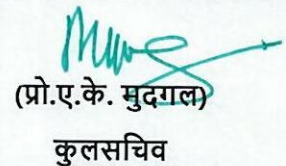 (प्रो.ए.के. मुदगल)
कुलसचिव